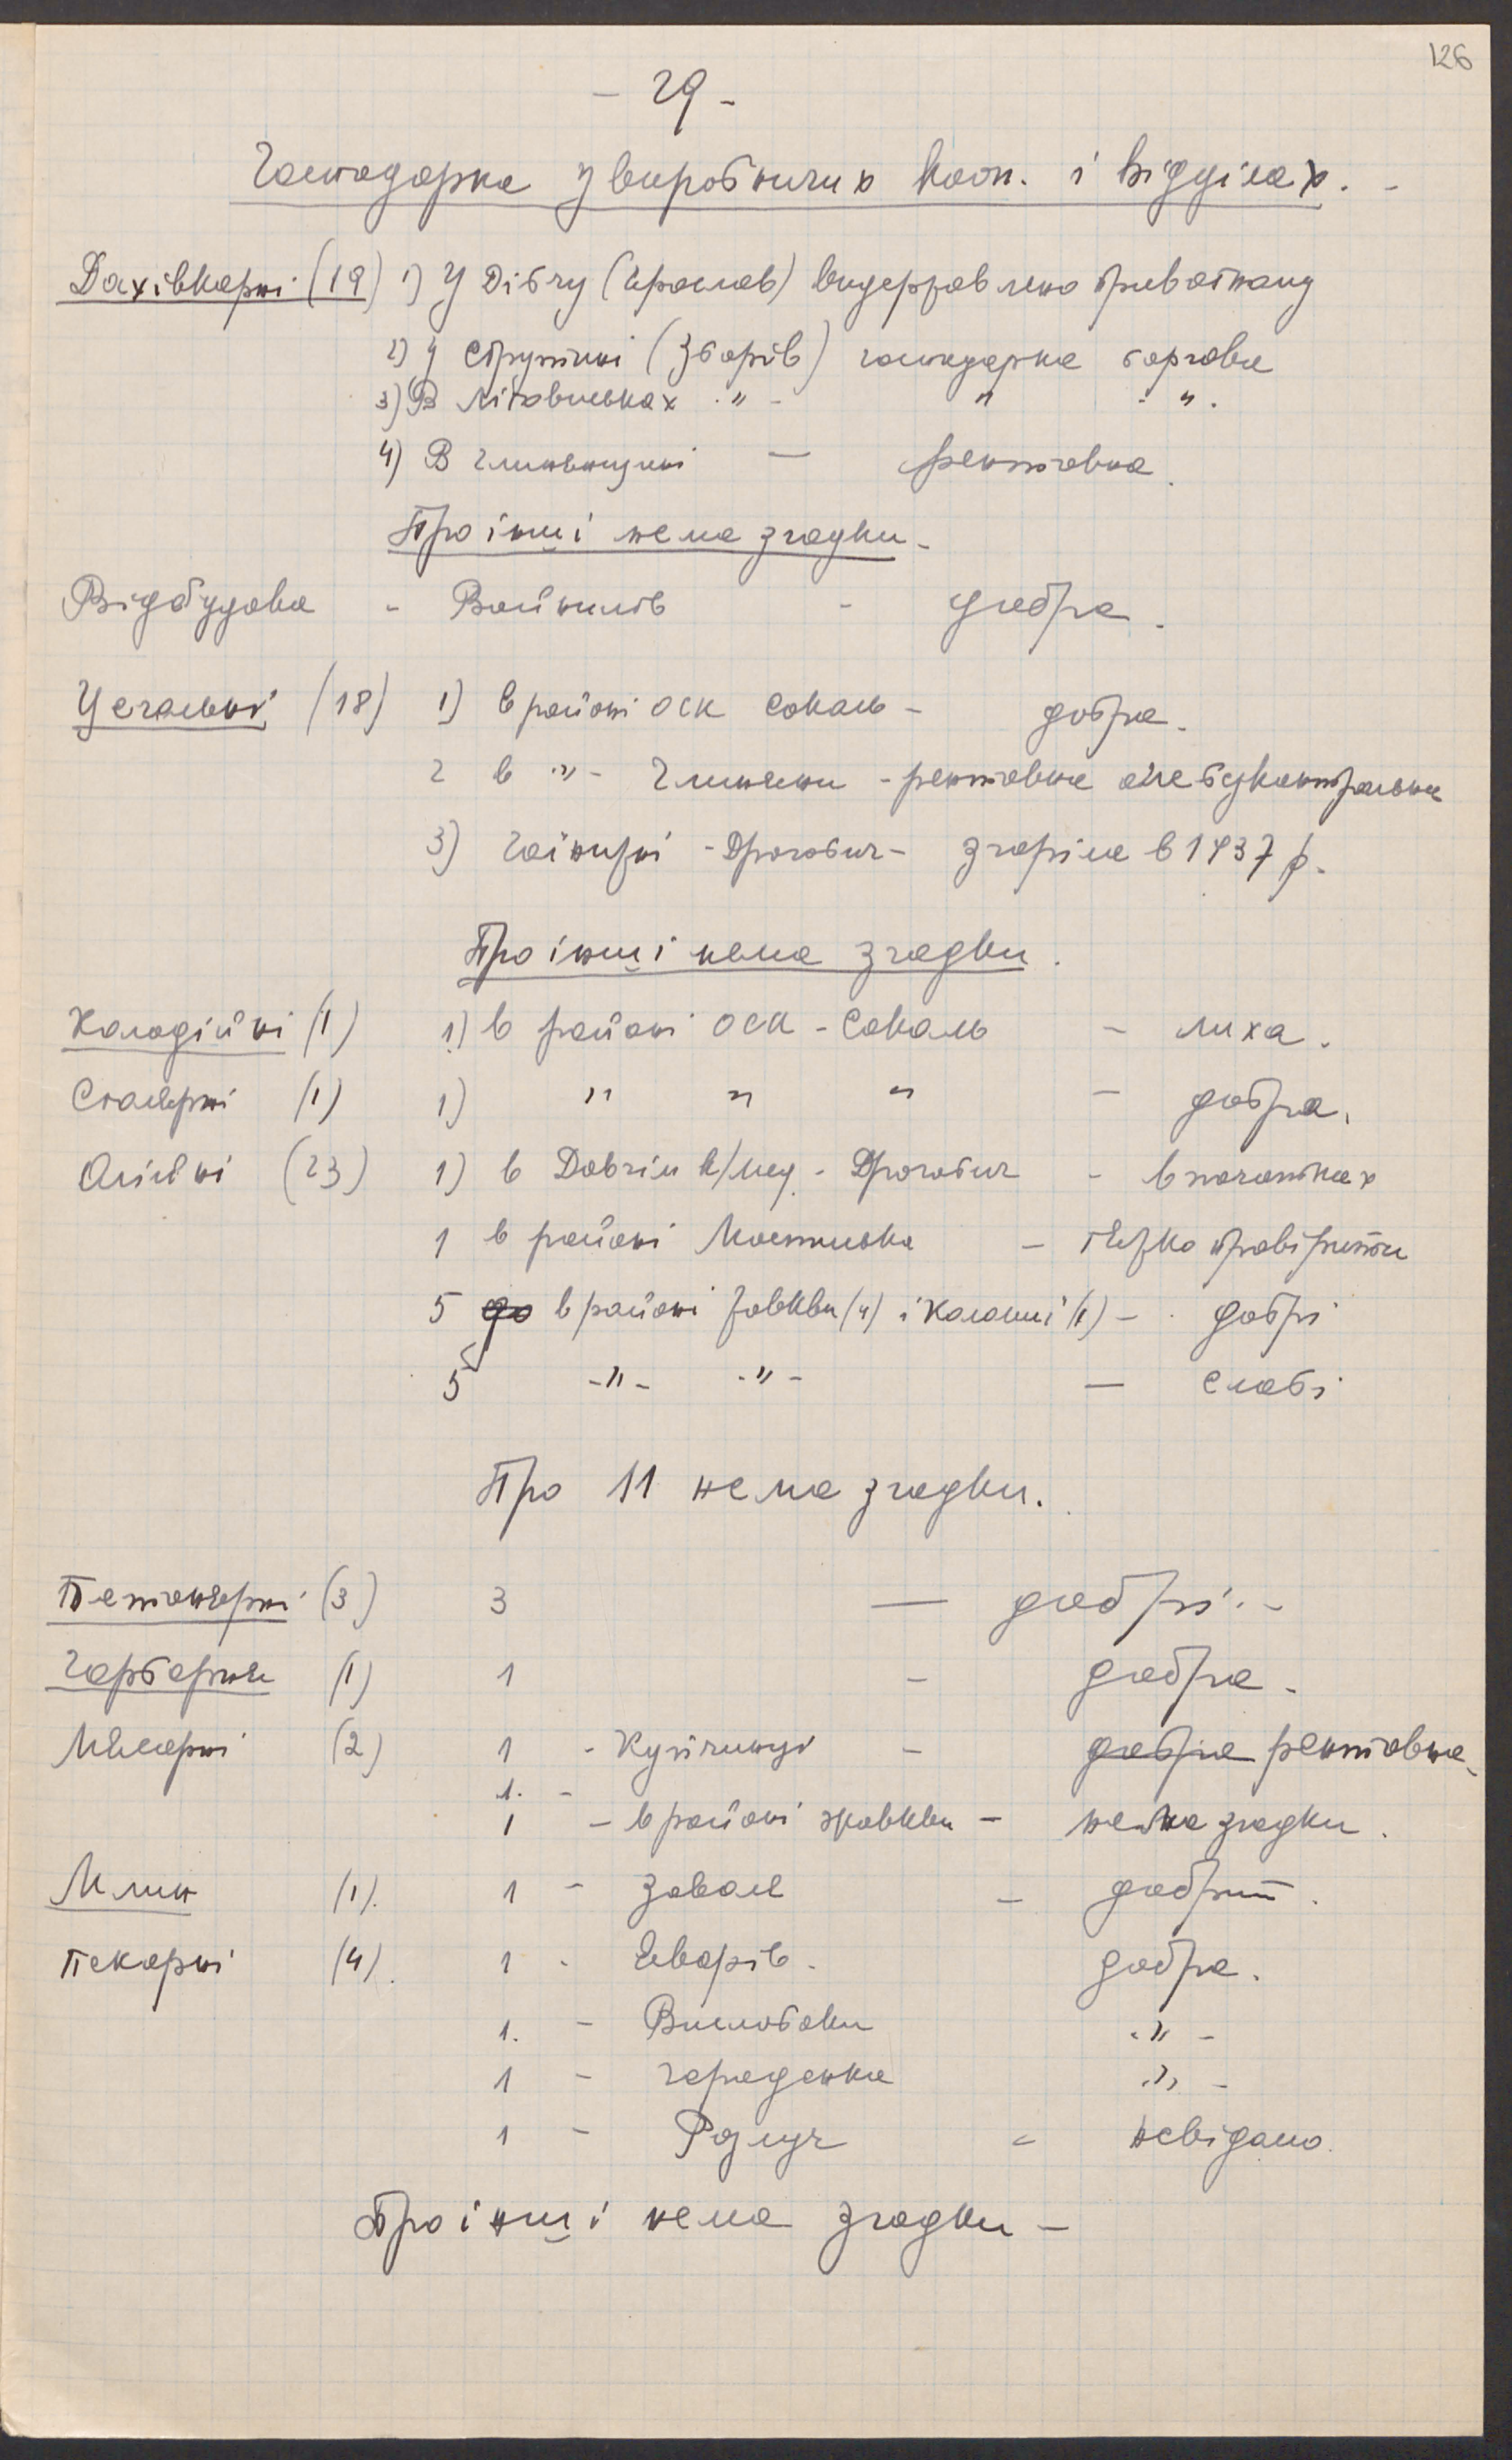 126
- 29 -
Господарка у виробничих кооп. і відділах. -
Дахівкарні (19) 1) У Дібчу (Ярослав) видержавлено приватному
2) У (Зборів) господарка боргова
3) В Літовиськах -"- " -"-.
4) В Глинянщині — рентовна.
Про інші нема згадки -
Відбудова - Войнилів - добра.
Цегольні (18) 1) в районі ОСК Сокаль - добра.
2 в -"- Глиняни - рентовна але безконтрольна
3) Гаї нижні - Дрогобич - згоріла в 1937 р.
Про інші нема згадки.
Колодійні (1) 1) в районі ОСК - Сокаль - лиха.
Столярні (1) 1) " " " - добра.
Олійні (23) 1) в Довгім п/мед. - Дрогобич - в початках
1 в районі Мостиська - тяжко провірити
5 до в районі Жовкви (4) і Коломиї (1) - добрі
5 -"- -"- — слабі
Про 11 нема згадки.
Бетонярні (3) 3 — добрі. -
Гарбарня (1) 1 - добра -
Мясарні (2) 1 - - добра рентовна.
1. -
1 - в районі Жовкви - нема згадки.
Млин (1). 1 - Завале - добрий.
Пекарні (4). 1 - Яворів - добра.
1. - Вислобоки -"-
1 - Городенка -"-
1 - Розлуч - невідомо.
Про інші нема згадки -